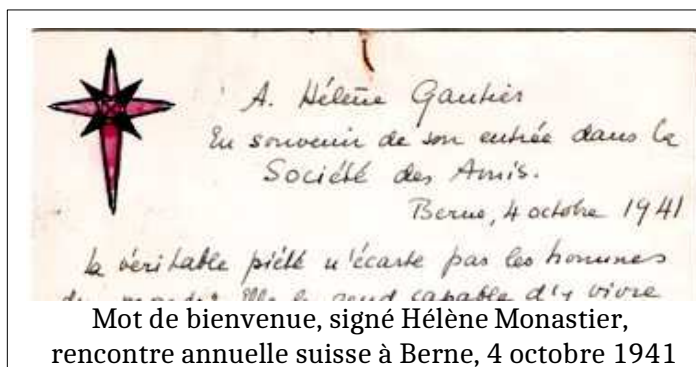 A. Hélène Gautier
En souvenir de son entrée dans la
Société des Amis.
Berne, 4 octobre 1941
la véritable piété n'écarte pas les hommes
du monde: Elle le rend capable d'y vivre
Mot de bienvenue, signé Hélène Monastier,
rencontre annuelle suisse à Berne, 4 octobre 1941